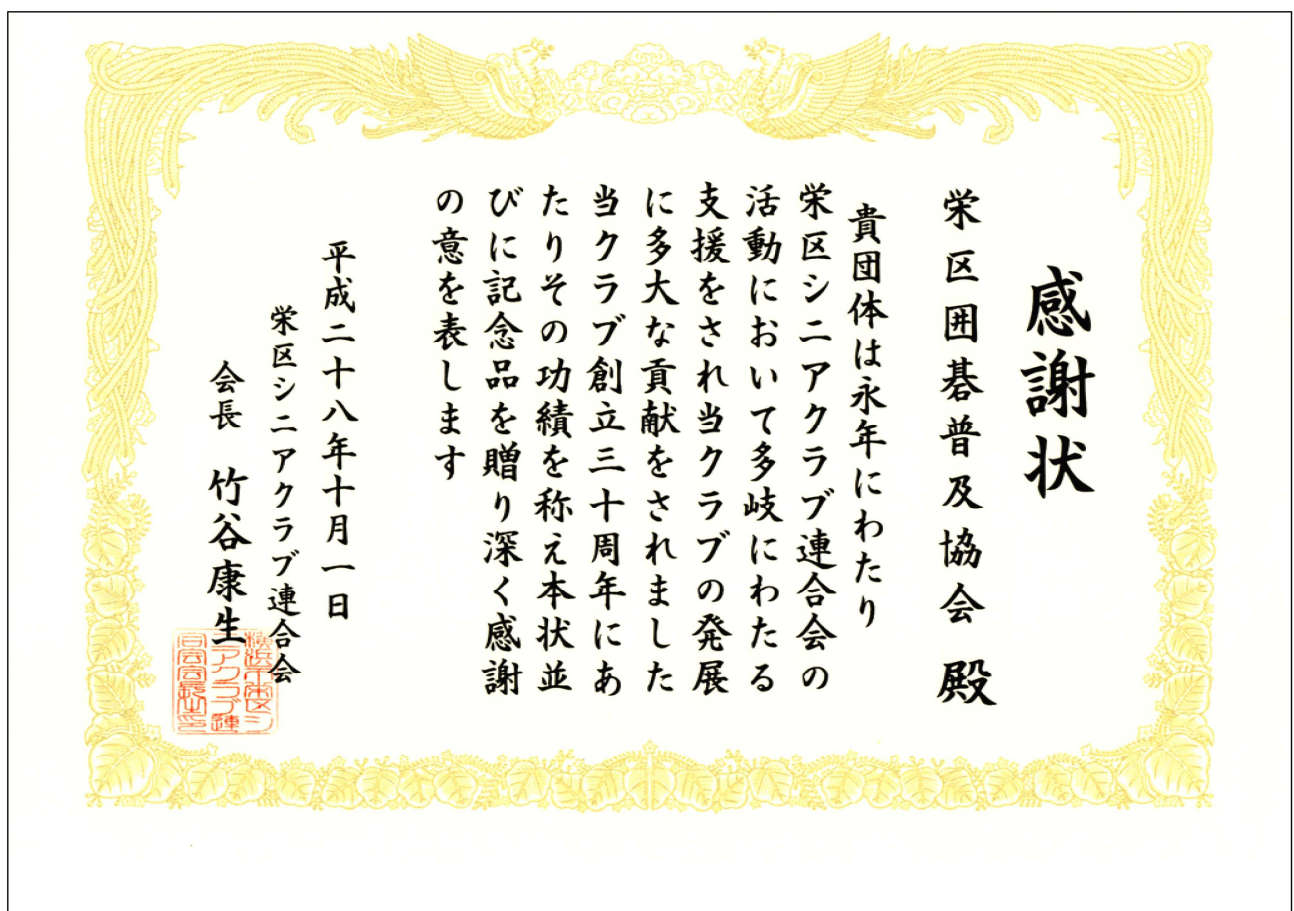 感謝状
栄区囲碁普及協会 殿
貴団体は永年にわたり
栄区シニアクラブ連合会の
活動において多岐にわたる
支援をされ当クラブの発展
に多大な貢献をされました
当クラブ創立三十周年にあ
たりその功績を称え本状並
びに記念品を贈り深く感謝
の意を表します
平成二十八年十月一日
栄区シニアクラブ連合会
会長 竹谷康生
横浜市栄区シ
ニアクラブ連
合会会長之印